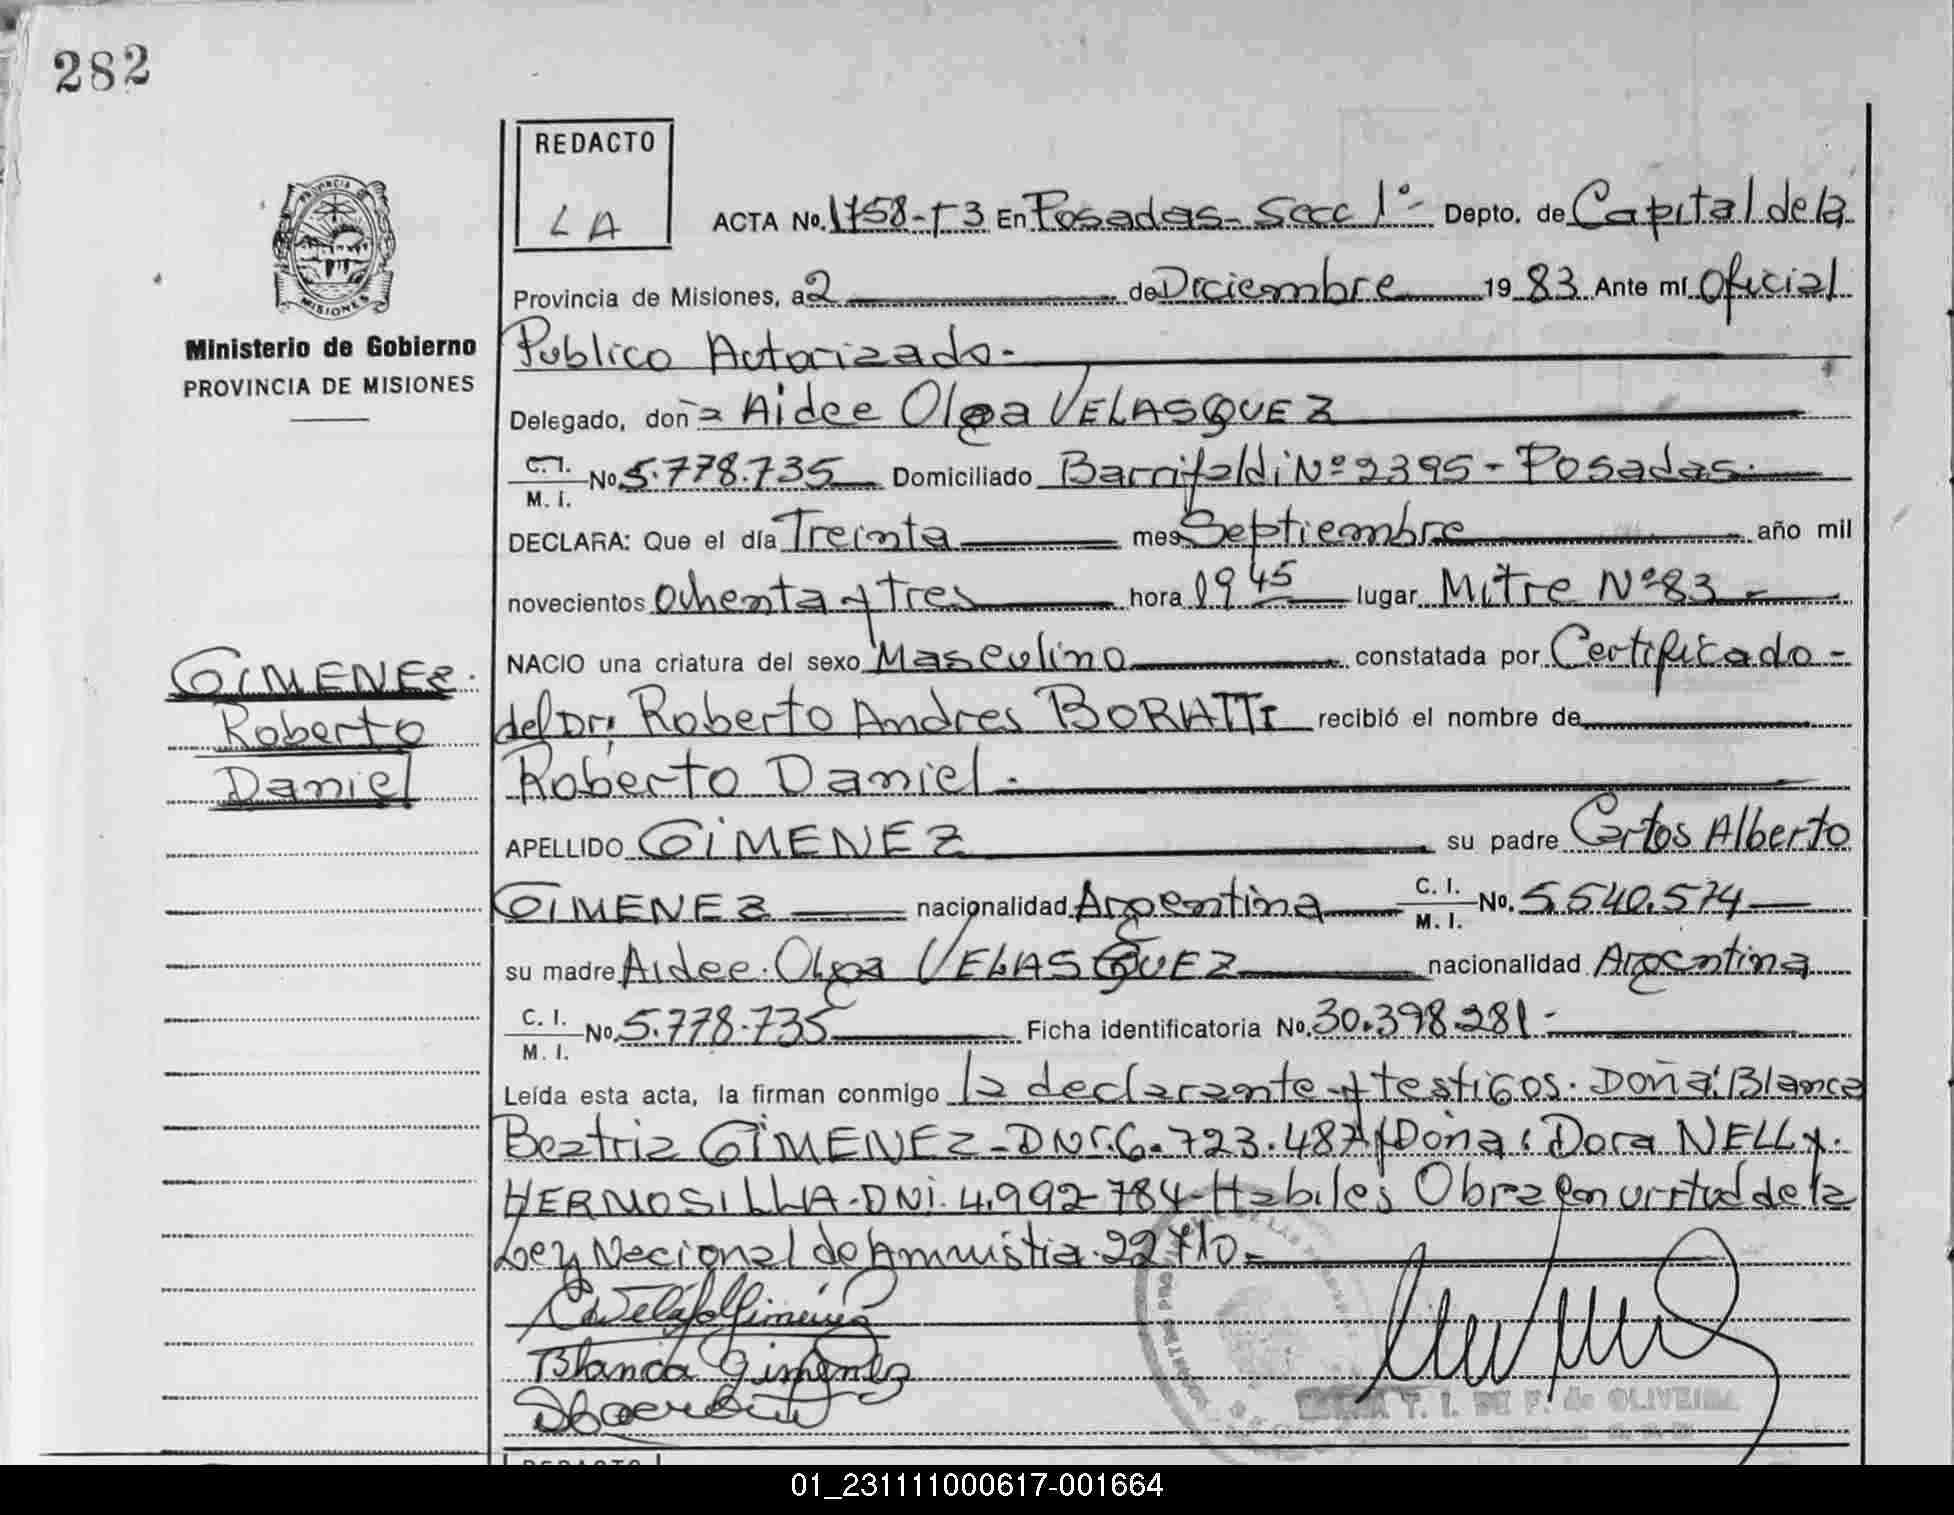 282
REDACTO
LA
ACTA No. 1758-T3 En Posadas - Secc 1º - Depto. de Capital de la
Provincia de Misiones, a 2 de Diciembre 1983 Ante mí Oficial
Publico Autorizado.-
PROVINCIA DE
MISIONES
Ministerio de Gobierno
PROVINCIA DE MISIONES
Delegado, doña Aidee Olga VELASQUEZ
C.I. M.I. No 5.778.735 Domiciliado Barrifaldi Nº 2395 - Posadas.
DECLARA: Que el día Treinta mes Septiembre año mil
novecientos ochenta y tres hora 19 45 lugar Mitre Nº 83 -
NACIO una criatura del sexo Masculino constatada por Certificado -
del Dr: Roberto Andres BORIATTI recibió el nombre de
Roberto Daniel.
APELLIDO GIMENEZ su padre Carlos Alberto
GIMENEZ nacionalidad Argentina C.I. M.I. No. 5.540.574
su madre Aidee Olga VELASQUEZ nacionalidad Argentina
C.I. M.I. No. 5.778.735 Ficha identificatoria No. 30.398.281 -
Leída esta acta, la firman conmigo la declarante y testigos. Doña: Blanca
Beatriz GIMENEZ - DNI. 6.723.487 y Doña: Dora NELLY.
HERMOSILLA - DNI. 4.992-784 - Habiles Obra en virtud de la
Ley Nacional de Amnistia. 22710 -
GIMENEZ.
Roberto
Daniel
Blanca Gimenez
T. I. DE F. de OLIVEIRA
REDACTO
01_231111000617-001664